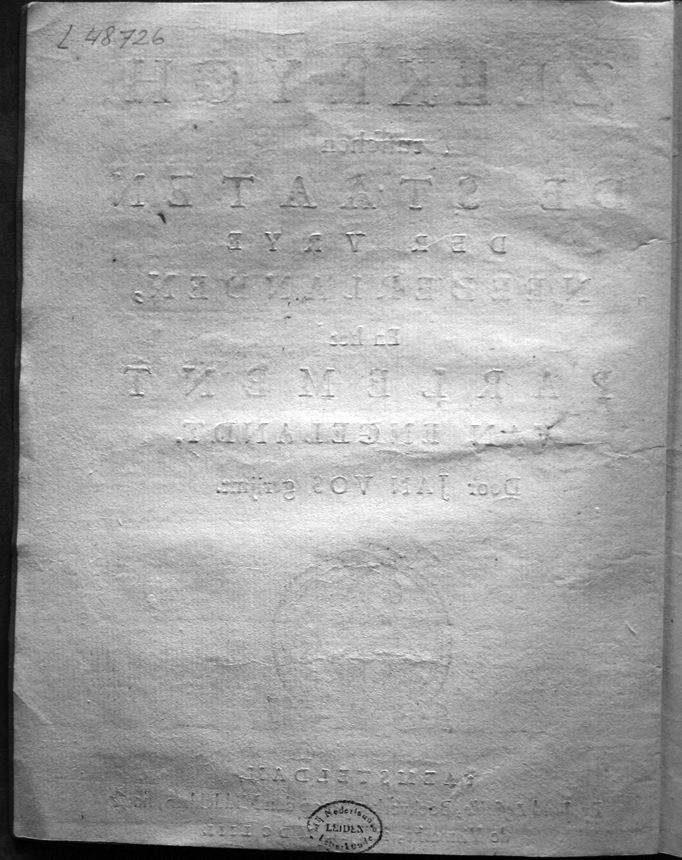 L 48726
ZEEKRYGH
Tusschen
DE STAATEN
DER VRYE
NEEDERLANDEN,
En het
PARLEMENT
VAN ENGELANDT.
Door JAN VOS gerijmt.
T'AMSTELDAM,
Mij Nederlandse
LEIDEN
Letterkunde